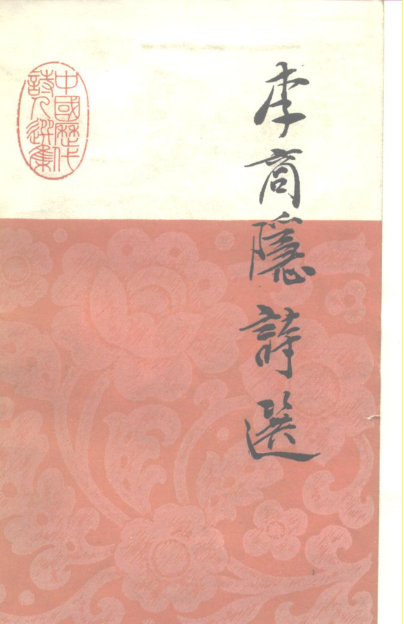 李商隱詩選
中國歷代
詩人選集